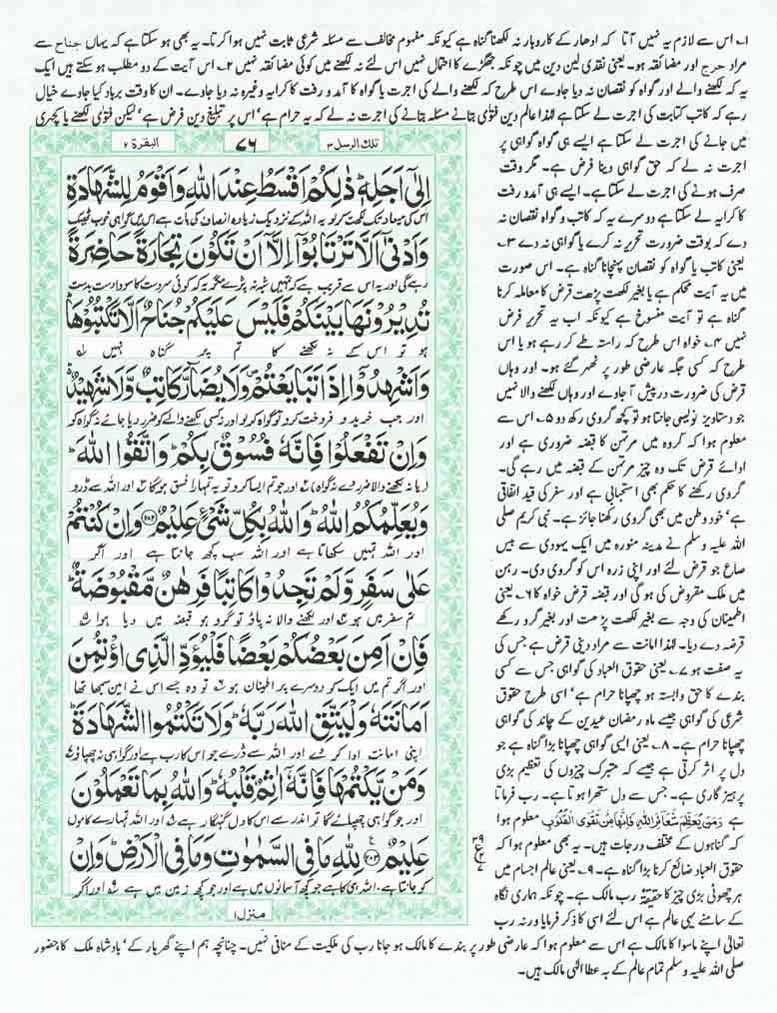 ۱۔ اس سے لازم یہ نہیں آتا کہ ادھار کے کاروبار نہ لکھنا گناہ ہے کیونکہ مفہوم مخالف سے مسئلہ شرعی ثابت نہیں ہوا کرتا۔ یہ بھی ہو سکتا ہے کہ یہاں جناح سے
مراد حرج اور مضائقہ ہو۔ یعنی نقدی لین دین میں چونکہ جھگڑے کا احتمال نہیں اس لئے نہ لکھنے میں کوئی مضائقہ نہیں ۲۔ اس آیت کے دو مطلب ہو سکتے ہیں ایک
یہ کہ لکھنے والے اور گواہ کو نقصان نہ دیا جاوے اس طرح کہ لکھنے والے کی اجرت یا گواہ کا آمد و رفت کا کرایہ وغیرہ نہ دیا جاوے۔ ان کا وقت برباد کیا جاوے خیال
رہے کہ کاتب کتابت کی اجرت لے سکتا ہے لہٰذا عالم دین فتویٰ بتانے مسئلہ بتانے کی اجرت نہ لے کہ یہ حرام ہے' اس پر تبلیغ دین فرض ہے' لیکن فتویٰ لکھنے یا کچہری
میں جانے کی اجرت لے سکتا ہے ایسے ہی گواہ گواہی پر
اجرت نہ لے کہ حق گواہی دینا فرض ہے۔ مگر وقت
صرف ہونے کی اجرت لے سکتا ہے۔ ایسے ہی آمد و رفت
کا کرایہ لے سکتا ہے دوسرے یہ کہ کاتب و گواہ نقصان نہ
دے کہ بوقت ضرورت تحریر نہ کرے یا گواہی نہ دے ۳۔
یعنی کاتب یا گواہ کو نقصان پہنچانا گناہ ہے۔ اس صورت
میں یہ آیت محکم ہے یا بغیر لکھت پڑھت قرض کا معاملہ کرنا
گناہ ہے تو آیت منسوخ ہے کیونکہ اب یہ تحریر فرض
نہیں ۴۔ خواہ اس طرح کہ راستہ طے کر رہے ہو یا اس
طرح کہ کسی جگہ عارضی طور پر ٹھہر گئے ہو۔ اور وہاں
قرض کی ضرورت درپیش آ جاوے اور وہاں لکھنے والا نہیں
جو دستاویز نویسی جانتا ہو تو کچھ گروی رکھ دو ۵۔ اس سے
معلوم ہوا کہ گروہ میں مرتہن کا قبضہ ضروری ہے اور
ادائے قرض تک وہ چیز مرتہن کے قبضہ میں رہے گی۔
گروی رکھنے کا حکم بھی استحبابی ہے اور سفر کی قید اتفاقی
ہے' خود وطن میں بھی گروی رکھنا جائز ہے۔ نبی کریم صلی
اللہ علیہ وسلم نے مدینہ منورہ میں ایک یہودی سے بیس
صاع جو قرض لئے اور اپنی زرہ اس کو گروی دی۔ رہن
میں ملک مقروض کی ہو گی اور قبضہ قرض خواہ کا ۶۔ یعنی
اطمینان کی وجہ سے بغیر لکھت پڑھت اور بغیر گرو رکھے
قرضہ دے دیا۔ لہٰذا امانت سے مراد دینی قرض ہے جس کی
یہ صفت ہو ۷۔ یعنی حقوق العباد کی گواہی جس سے کسی
بندے کا حق وابستہ ہو چھپانا حرام ہے' اسی طرح حقوق
شرعی کی گواہی جیسے ماہ رمضان عیدین کے چاند کی گواہی
چھپانا حرام ہے۔ ۸۔ یعنی ایسی گواہی چھپانا بڑا گناہ ہے جو
دل پر اثر کرتی ہے جیسے کہ متبرک چیزوں کی تعظیم بڑی
پرہیز گاری ہے۔ جس سے دل ستھرا ہوتا ہے۔ رب فرماتا
ہے وَمَنْ يُّعَظِّمْ شَعَآئِرَ اللهِ فَاِنَّهَا مِنْ تَقْوَى الْقُلُوْبِ معلوم ہوا
کہ گناہوں کے مختلف درجات ہیں۔ یہ بھی معلوم ہوا کہ
حقوق العباد ضائع کرنا بڑا گناہ ہے۔ ۹۔ یعنی عالم اجسام میں
ہر چھوٹی بڑی چیز کا حقیقتہ رب مالک ہے۔ چونکہ ہماری نگاہ
کے سامنے یہی عالم ہے اس لئے اسی کا ذکر فرمایا ورنہ رب
تعالیٰ اپنے ماسوا کا مالک ہے اس سے معلوم ہوا کہ عارضی طور پر بندے کا مالک ہو جانا رب کی ملکیت کے منافی نہیں۔ چنانچہ ہم اپنے گھر بار کے' بادشاہ ملک کا حضور
صلی اللہ علیہ وسلم تمام عالم کے بہ عطا الٰہی مالک ہیں۔
تلك الرسل ۳
۷۶
البقرة ۲
اِلٰٓى اَجَلِهٖ ذٰلِكُمْ اَقْسَطُ عِنْدَ اللهِ وَاَقْوَمُ لِلشَّهَادَةِ
اس کی میعاد تک لکھت کر لو یہ اللہ کے نزدیک زیادہ انصاف کی بات ہے اس میں گواہی خوب ٹھیک
وَاَدْنٰٓى اَلَّا تَرْتَابُوْٓا اِلَّآ اَنْ تَكُوْنَ تِجَارَةً حَاضِرَةً
رہے گی اور یہ اس سے قریب ہے کہ تمہیں شبہ نہ پڑے مگر یہ کہ کوئی سردست کا سودا دست بدست
تُدِيْرُوْنَهَا بَيْنَكُمْ فَلَيْسَ عَلَيْكُمْ جُنَاحٌ اَلَّا تَكْتُبُوْهَا
ہو تو اس کے نہ لکھنے کا تم پر گناہ نہیں
وَاَشْهِدُوْٓا اِذَا تَبَايَعْتُمْ وَلَا يُضَآرَّ كَاتِبٌ وَّلَا شَهِيْدٌ
اور جب خرید و فروخت کرو تو گواہ کر لو اور نہ کسی لکھنے والے کو ضرر دیا جائے نہ گواہ کو
وَاِنْ تَفْعَلُوْا فَاِنَّهٗ فُسُوْقٌ بِكُمْ وَاتَّقُوا اللهَ
(یا نہ لکھنے والا ضرر دے نہ گواہ) اور جو تم ایسا کرو تو یہ تمہارا فسق ہو گا اور اللہ سے ڈرو
وَيُعَلِّمُكُمُ اللهُ وَاللهُ بِكُلِّ شَيْءٍ عَلِيْمٌ وَاِنْ كُنْتُمْ
اور اللہ تمہیں سکھاتا ہے اور اللہ سب کچھ جانتا ہے اور اگر
عَلٰى سَفَرٍ وَّلَمْ تَجِدُوْا كَاتِبًا فَرِهٰنٌ مَّقْبُوْضَةٌ
تم سفر میں ہو اور لکھنے والا نہ پاؤ تو گرو ہو قبضہ میں دیا ہوا
فَاِنْ اَمِنَ بَعْضُكُمْ بَعْضًا فَلْيُؤَدِّ الَّذِى اؤْتُمِنَ
اور اگر تم میں ایک کو دوسرے پر اطمینان ہو تو وہ جسے اس نے امین سمجھا تھا
اَمَانَتَهٗ وَلْيَتَّقِ اللهَ رَبَّهٗ وَلَا تَكْتُمُوا الشَّهَادَةَ
اپنی امانت ادا کر دے اور اللہ سے ڈرے جو اس کا رب ہے اور گواہی نہ چھپاؤ
وَمَنْ يَّكْتُمْهَا فَاِنَّهٗٓ اٰثِمٌ قَلْبُهٗ وَاللهُ بِمَا تَعْمَلُوْنَ
اور جو گواہی چھپائے گا تو اندر سے اس کا دل گنہگار ہے اور اللہ تمہارے کاموں
عَلِيْمٌ لِلّٰهِ مَا فِى السَّمٰوٰتِ وَمَا فِى الْاَرْضِ وَاِنْ
کو جانتا ہے، اللہ ہی کا ہے جو کچھ آسمانوں میں ہے اور جو کچھ زمین میں ہے اور اگر
منزل ۱